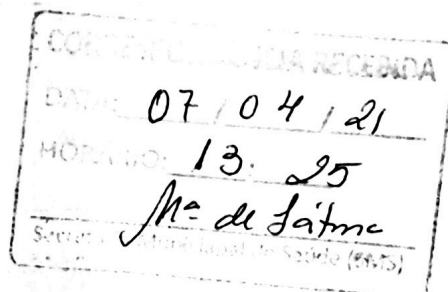 CORRESPONDÊNCIA RECEBIDA
DATA: 07 / 04 / 21
HORÁRIO: 13: 25
Mª de Fátima
Secretaria Municipal de Saúde (SMS)